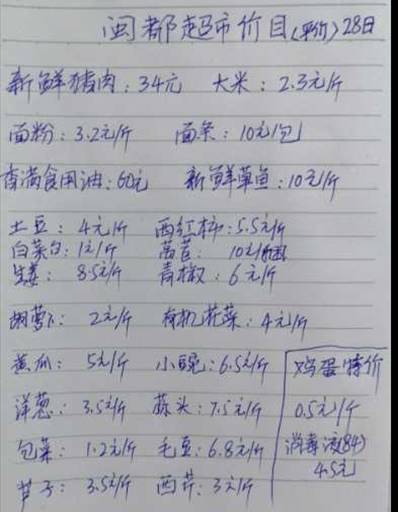 闽都超市价目(平价)28日
新鲜猪肉:34元 大米:2.3元/斤
面粉:3.2元/斤 面条:10元/包
香满食用油:60元 新鲜草鱼:10元/斤
土豆:4元/斤 西红柿:5.5元/斤
白菜:1元/斤 莴苣:10元/
生姜:8.5元/斤 青椒:6元/斤
胡萝卜:2元/斤 有机花菜:4元/斤
黄瓜:5元/斤 小豌:6.5元/斤
洋葱:3.5元/斤 蒜头:7.5元/斤
包菜:1.2元/斤 毛豆:6.8元/斤
芋子:3.5元/斤 西芹:3元/斤
鸡蛋特价
0.5元/斤
消毒液(84)
4.5元